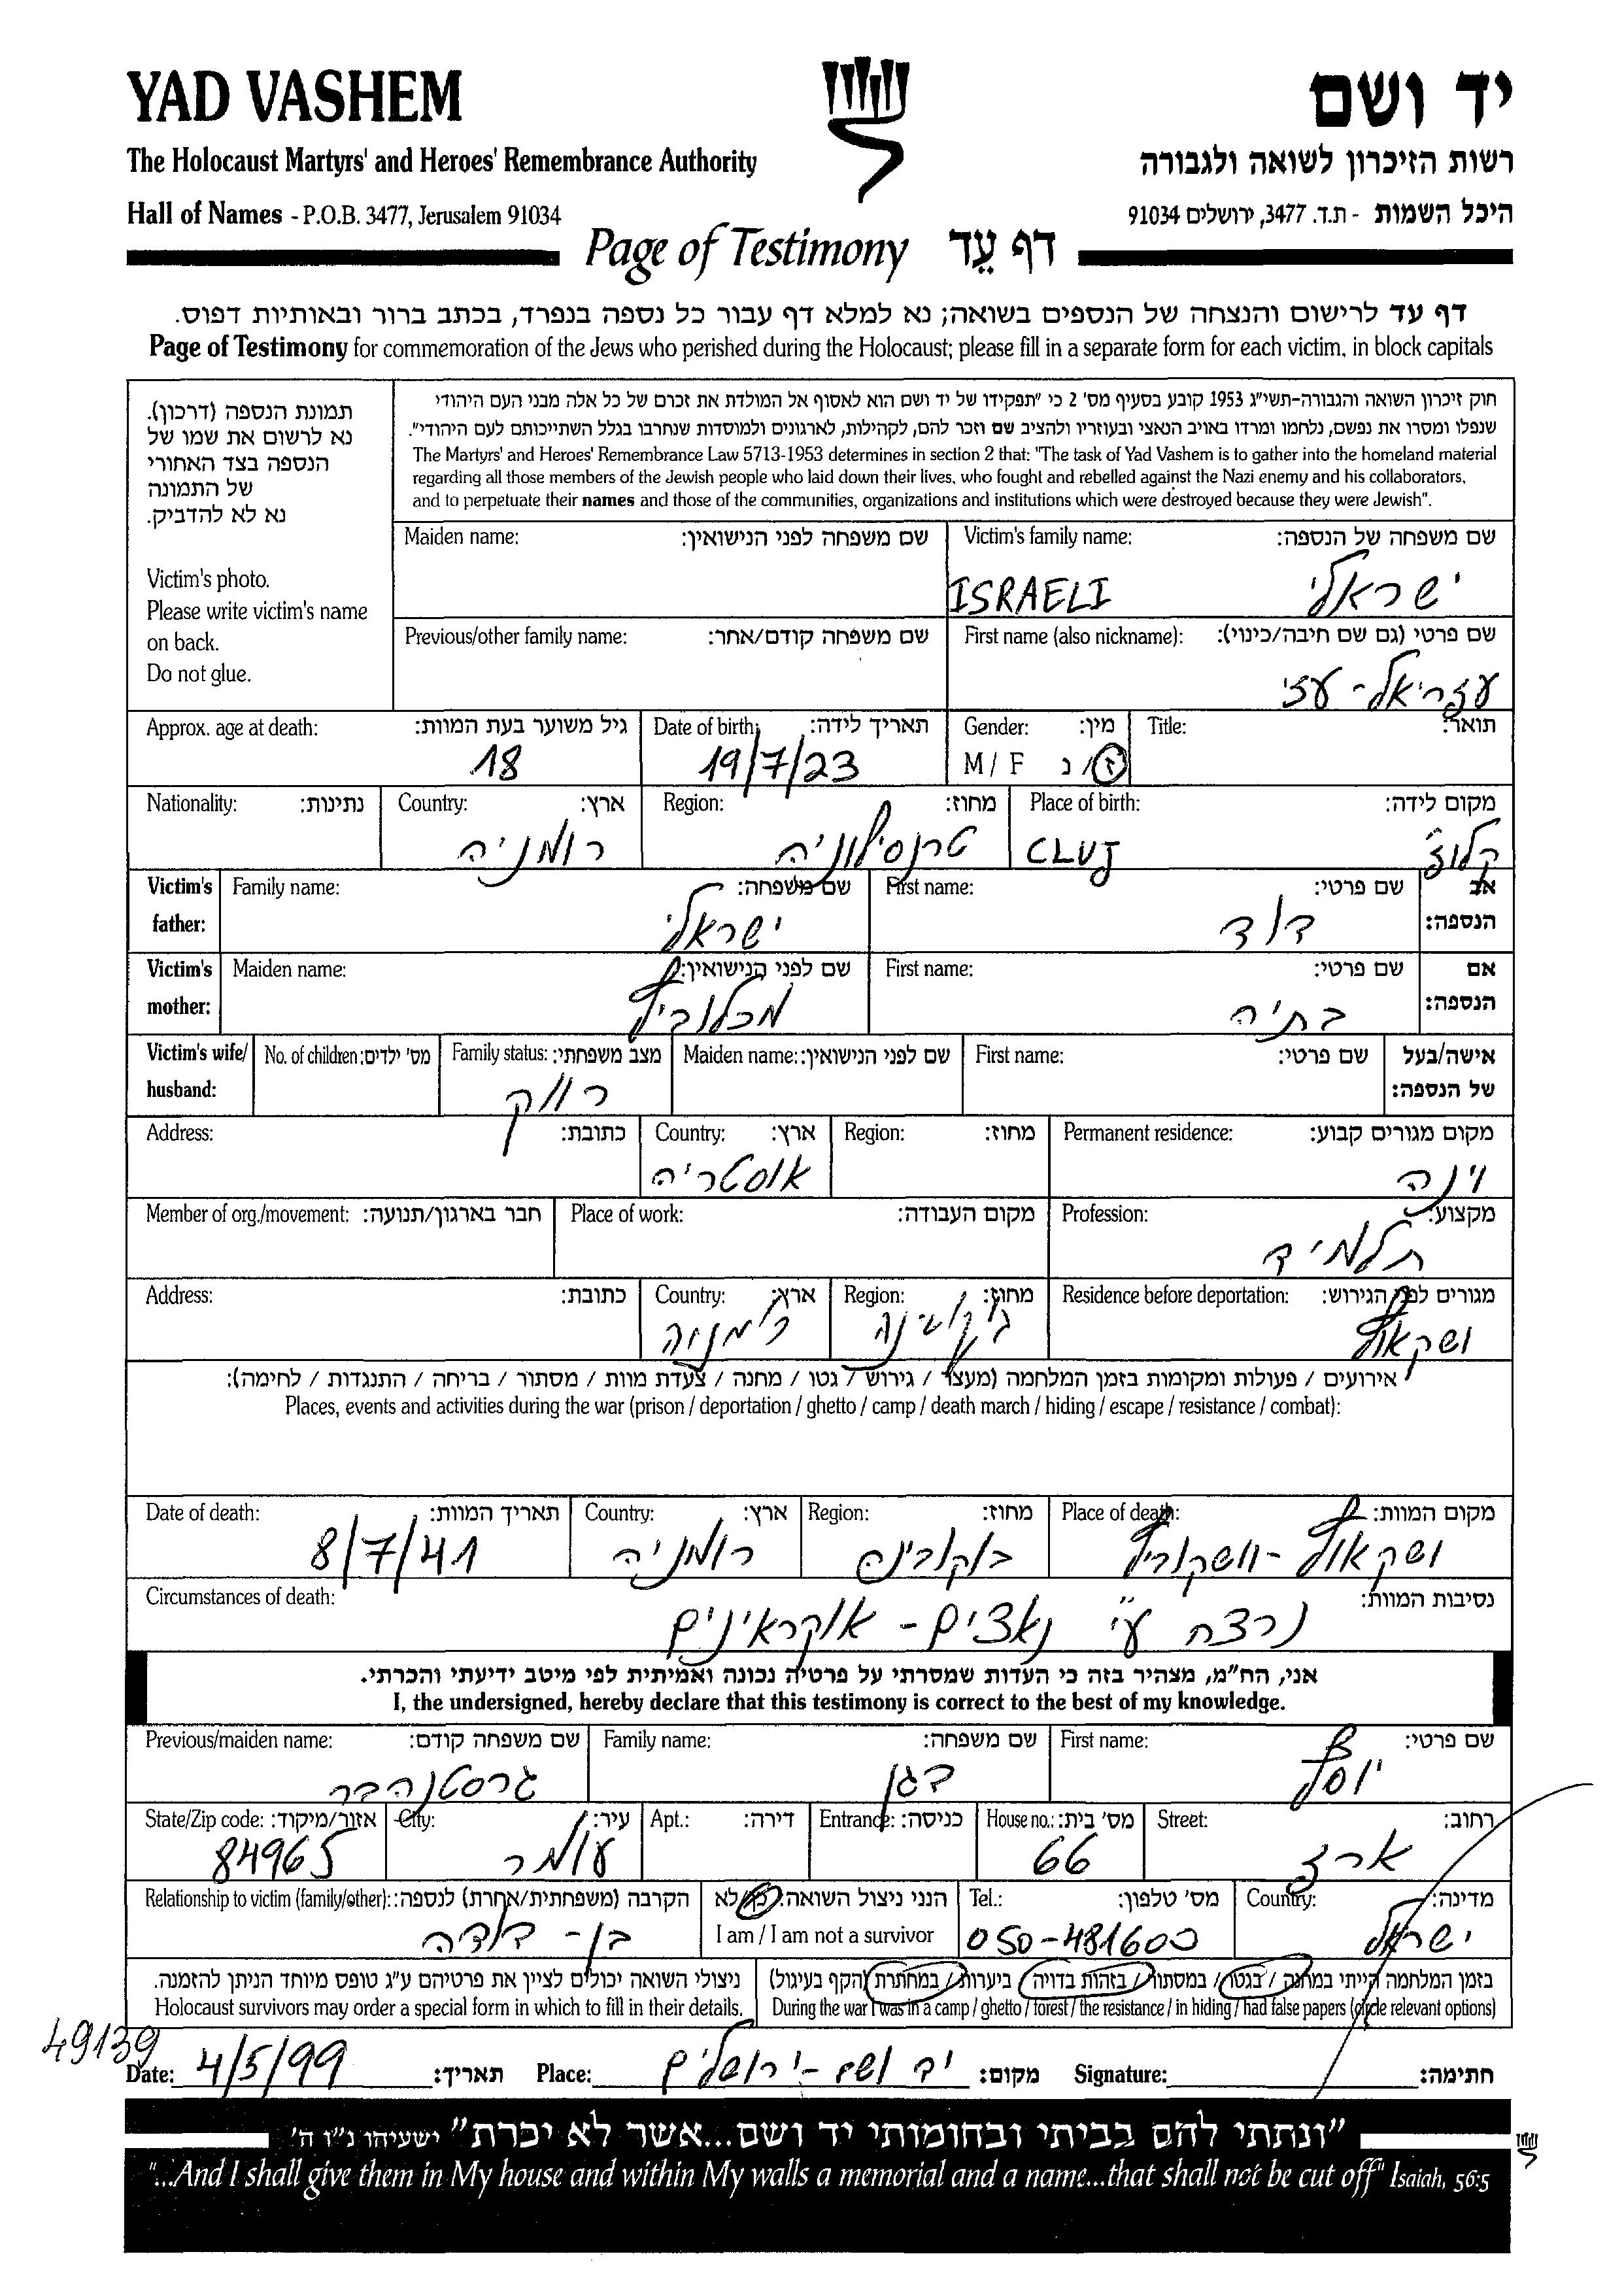 YAD VASHEM
יד ושם
The Holocaust Martyrs' and Heroes' Remembrance Authority
רשות הזיכרון לשואה ולגבורה
Hall of Names - P.O.B. 3477, Jerusalem 91034
היכל השמות - ת.ד. 3477, ירושלים 91034
Page of Testimony דף עֵד
דף עד לרישום והנצחה של הנספים בשואה; נא למלא דף עבור כל נספה בנפרד, בכתב ברור ובאותיות דפוס.
Page of Testimony for commemoration of the Jews who perished during the Holocaust; please fill in a separate form for each victim, in block capitals
תמונת הנספה (דרכון).
נא לרשום את שמו של
הנספה בצד האחורי
של התמונה
נא לא להדביק.
Victim's photo.
Please write victim's name
on back.
Do not glue.
חוק זיכרון השואה והגבורה-תשי"ג 1953 קובע בסעיף מס' 2 כי "תפקידו של יד ושם הוא לאסוף אל המולדת את זכרם של כל אלה מבני העם היהודי
שנפלו ומסרו את נפשם, נלחמו ומרדו באויב הנאצי ובעוזריו ולהציב שם וזכר להם, לקהילות, לארגונים ולמוסדות שנחרבו בגלל השתייכותם לעם היהודי".
The Martyrs' and Heroes' Remembrance Law 5713-1953 determines in section 2 that: "The task of Yad Vashem is to gather into the homeland material
regarding all those members of the Jewish people who laid down their lives, who fought and rebelled against the Nazi enemy and his collaborators,
and to perpetuate their names and those of the communities, organizations and institutions which were destroyed because they were Jewish".
Maiden name: שם משפחה לפני הנישואין: Victim's family name: שם משפחה של הנספה:
ISRAELI ישראלי
Previous/other family name: שם משפחה קודם/אחר: First name (also nickname): שם פרטי (גם שם חיבה/כינוי):
עזריאל - עזי
Approx. age at death: גיל משוער בעת המוות: Date of birth: תאריך לידה: Gender: מין: Title: תואר:
18 19/7/23 M / F ז/ נ
Nationality: נתינות: Country: ארץ: Region: מחוז: Place of birth: מקום לידה:
רומניה טרנסילוניה CLUJ קלוג'
Victim's father: Family name: שם משפחה: First name: שם פרטי: אב הנספה:
ישראלי דוד
Victim's mother: Maiden name: שם לפני הנישואין: First name: שם פרטי: אם הנספה:
בתיה
Victim's wife/ husband: No. of children: מס' ילדים: Family status: מצב משפחתי: Maiden name: שם לפני הנישואין: First name: שם פרטי: אישה/בעל של הנספה:
רווק
Address: כתובת: Country: ארץ: Region: מחוז: Permanent residence: מקום מגורים קבוע:
אוסטריה וינה
Member of org./movement: חבר בארגון/תנועה: Place of work: מקום העבודה: Profession: מקצוע:
תלמיד
Address: כתובת: Country: ארץ: Region: מחוז: Residence before deportation: מגורים לפני הגירוש:
רומניה בוקובינה ושקאוץ
אירועים / פעולות ומקומות בזמן המלחמה (מעצר / גירוש / גטו / מחנה / צעדת מוות / מסתור / בריחה / התנגדות / לחימה):
Places, events and activities during the war (prison / deportation / ghetto / camp / death march / hiding / escape / resistance / combat):
Date of death: תאריך המוות: Country: ארץ: Region: מחוז: Place of death: מקום המוות:
8/7/41 רומניה בוקובינה ושקאוץ - וושקוביץ
Circumstances of death: נסיבות המוות:
נרצח ע"י נאצים - אוקראינים
אני, הח"מ, מצהיר בזה כי העדות שמסרתי על פרטיה נכונה ואמיתית לפי מיטב ידיעתי והכרתי.
I, the undersigned, hereby declare that this testimony is correct to the best of my knowledge.
Previous/maiden name: שם משפחה קודם: Family name: שם משפחה: First name: שם פרטי:
גרסטנהבר דגן יוסף
State/Zip code: אזור/מיקוד: City: עיר: Apt.: דירה: Entrance: כניסה: House no.: מס' בית: Street: רחוב:
84965 עומר 66 ארז
Relationship to victim (family/other): הקרבה (משפחתית/אחרת) לנספה: הנני ניצול השואה: כן/לא Tel.: מס' טלפון: Country: מדינה:
בן - דודה I am / I am not a survivor 050-481600 ישראל
ניצולי השואה יכולים לציין את פרטיהם ע"ג טופס מיוחד הניתן להזמנה. בזמן המלחמה הייתי במחנה / בגטו / במסתור / בזהות בדויה / ביערות / במחתרת (הקף בעיגול)
Holocaust survivors may order a special form in which to fill in their details. During the war I was in a camp / ghetto / forest / the resistance / in hiding / had false papers (circle relevant options)
49139
Date: 4/5/99 תאריך: Place: יד ושם - ירושלים מקום: Signature: חתימה:
"ונתתי להם בביתי ובחומותי יד ושם...אשר לא יכרת" ישעיהו נ"ו ה'
"...And I shall give them in My house and within My walls a memorial and a name...that shall not be cut off" Isaiah, 56:5